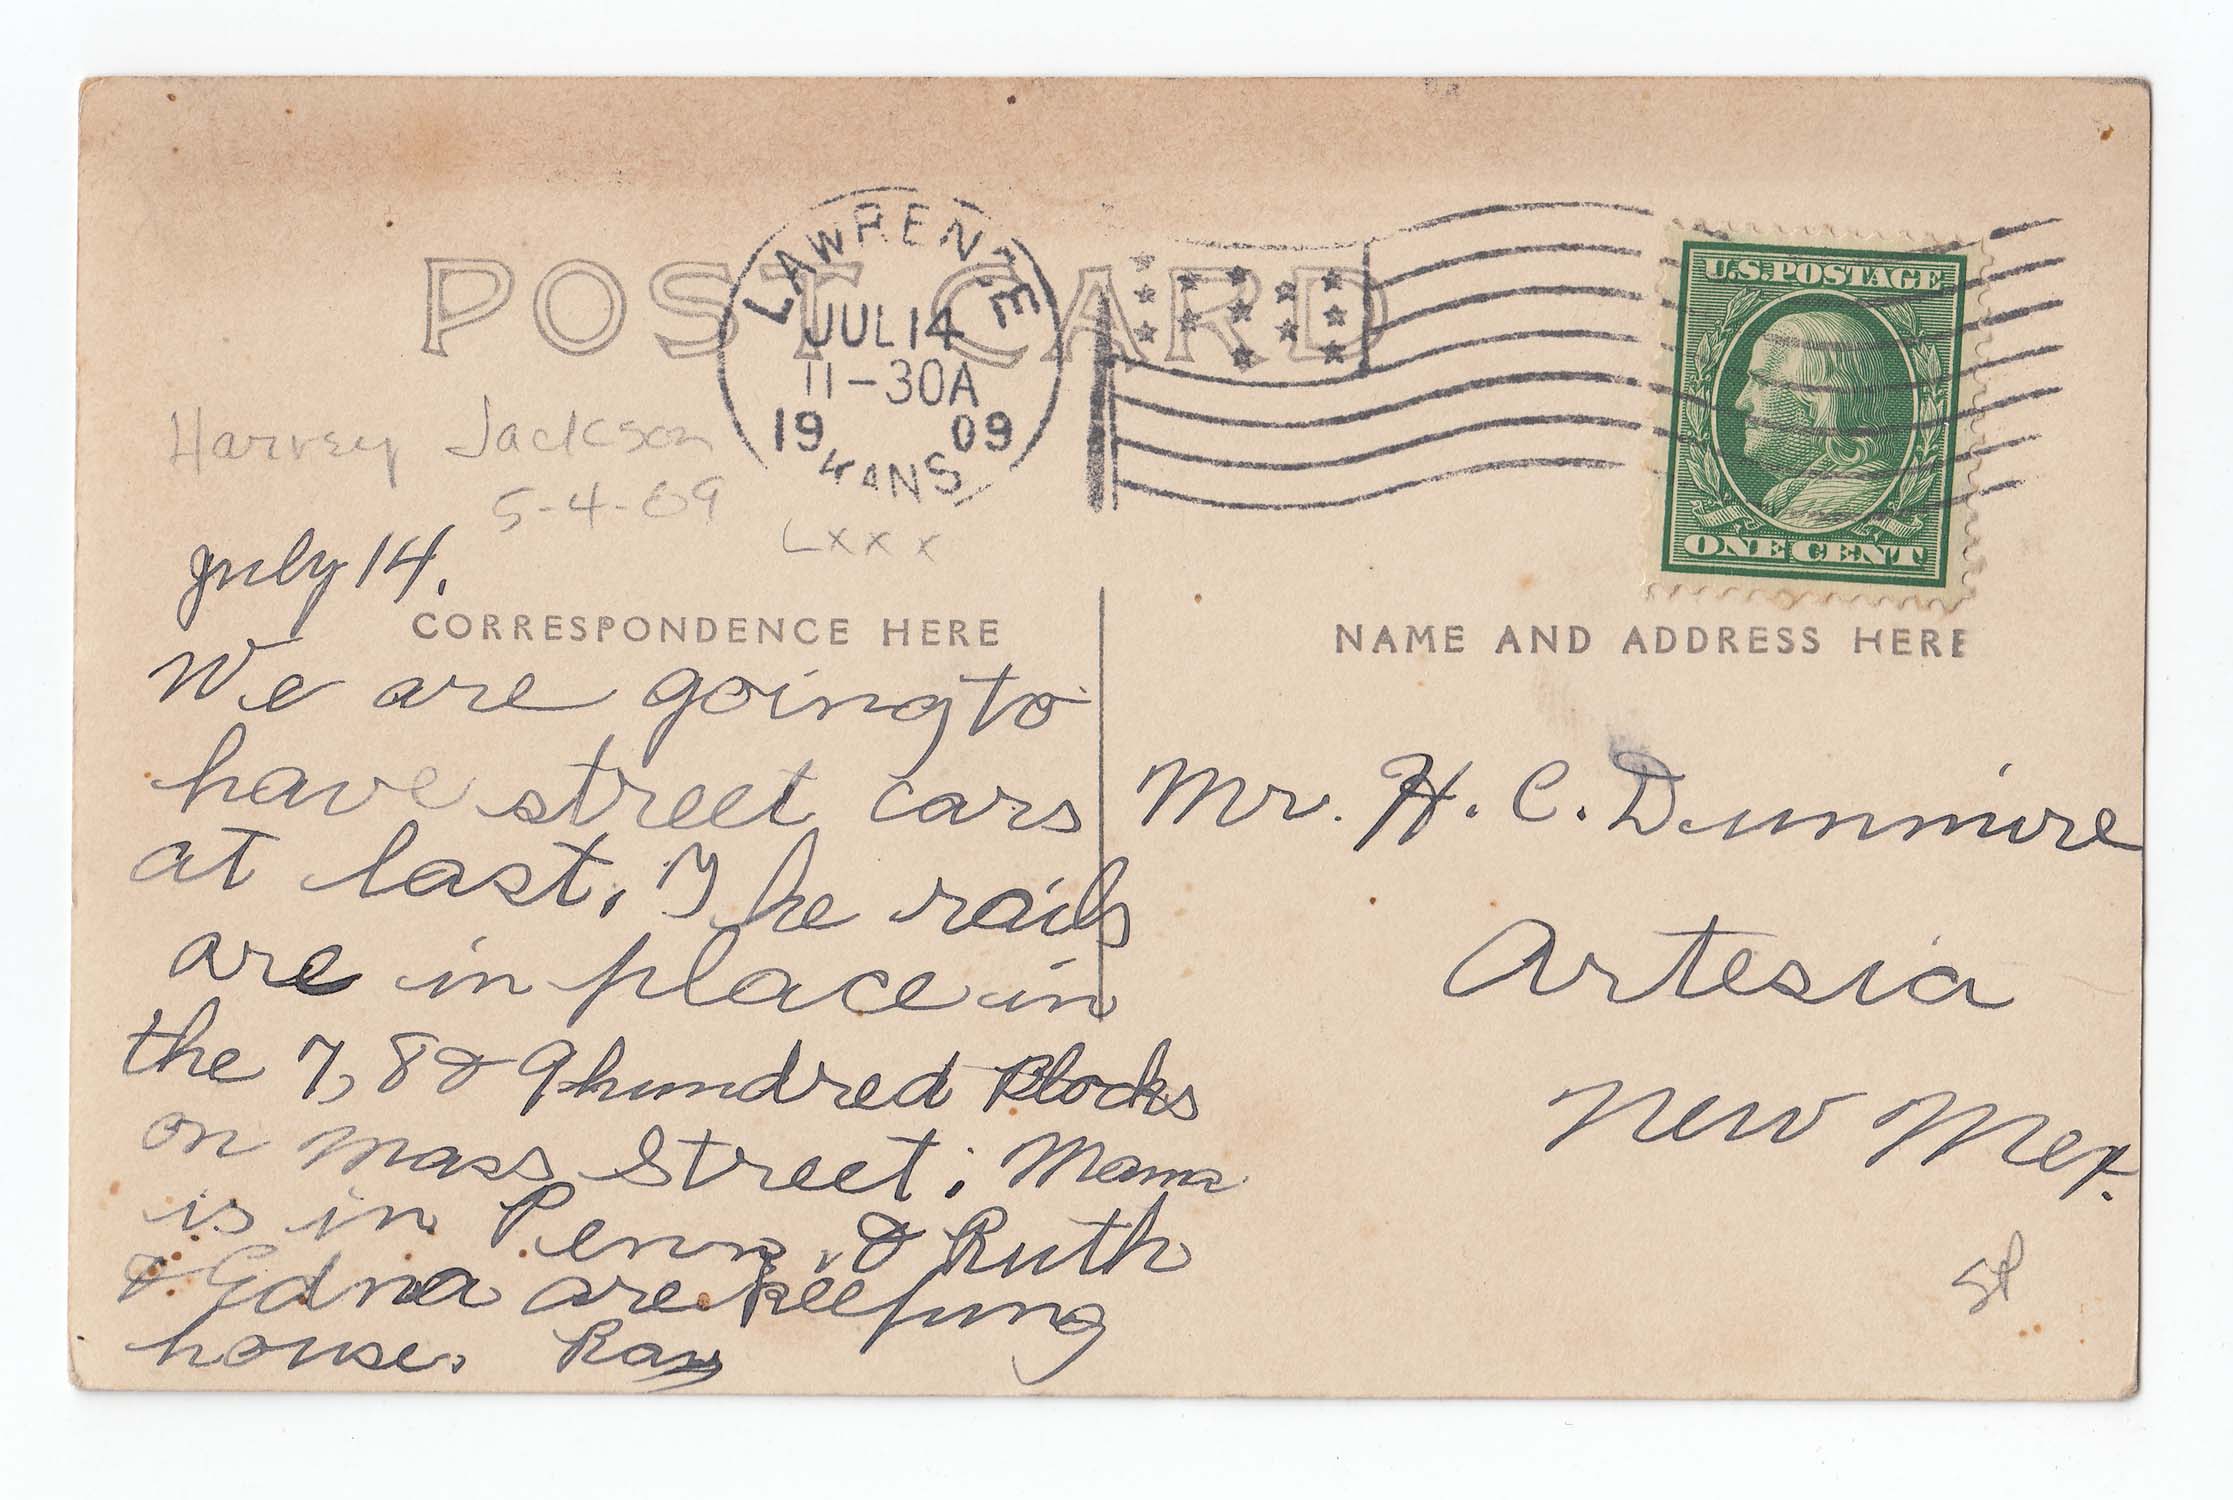 POST CARD
LAWRENCE
JUL 14
11-30A
1909
KANS
U.S. POSTAGE
ONE CENT
Harvey Jackson
5-4-69
Lxxx
July 14.
CORRESPONDENCE HERE
We are going to
have street cars
at last. The rails
are in place in
the 7, 8 & 9 hundred Blocks
on Mass Street; Mama
is in Penn, & Ruth
& Edna are keeping
house. Ray
NAME AND ADDRESS HERE
Mr. H. C. Dunmire
Artesia
New Mex.